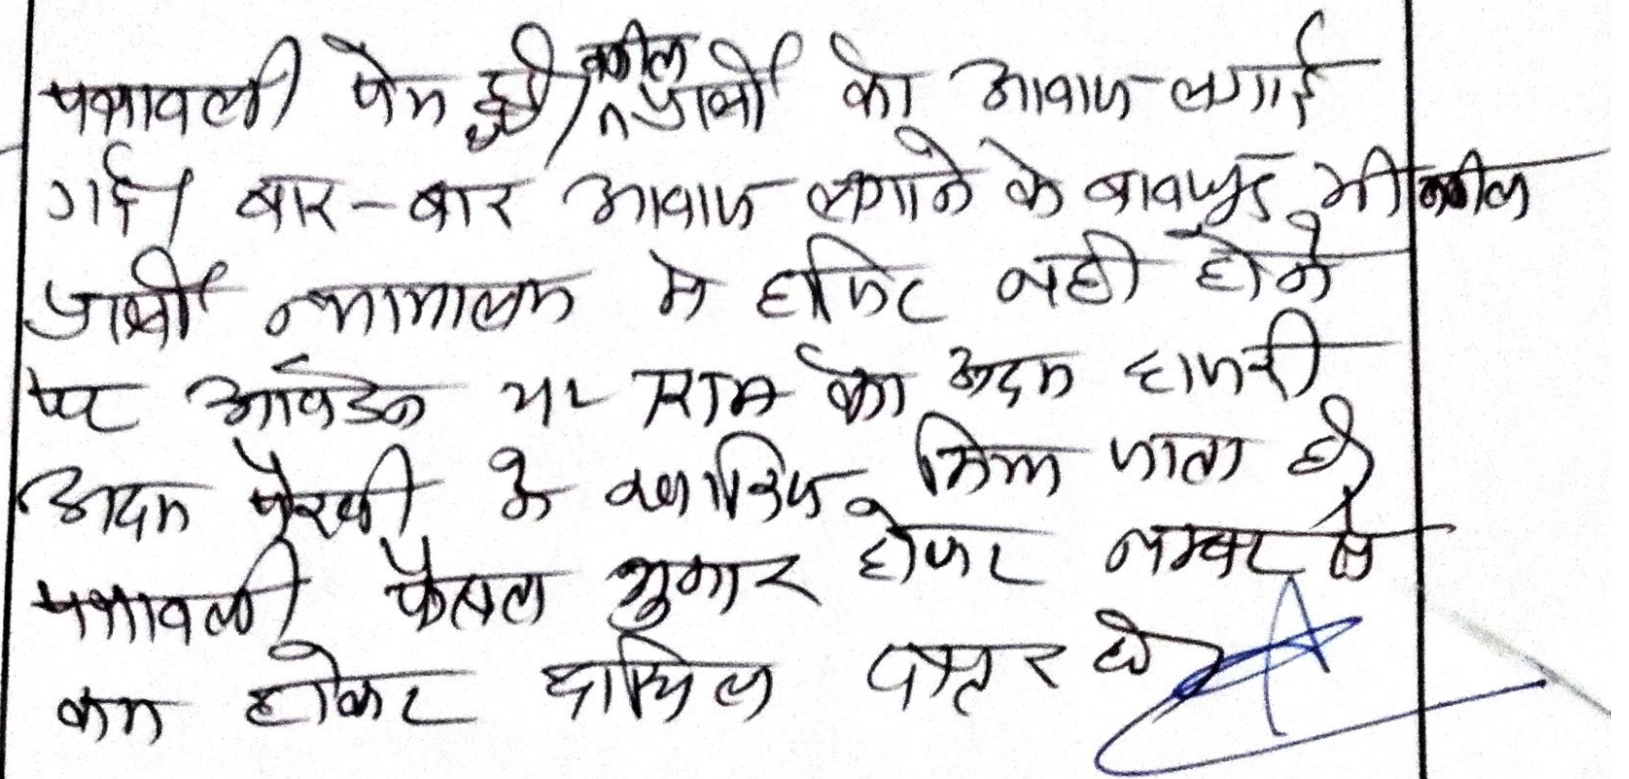 पत्रावली पेश हुई। वकील प्रार्थी को आवाज लगाई
गई। बार-बार आवाज लगाने के बावजूद भी वकील
प्रार्थी न्यायालय मे हाजिर नही होने
पर आवेदन का अदम हाजरी
अदम पैरवी के खारिज किया जाता है।
पत्रावली फैसल शुमार होकर नम्बर से
कम होकर दाखिल दफ्तर हो।